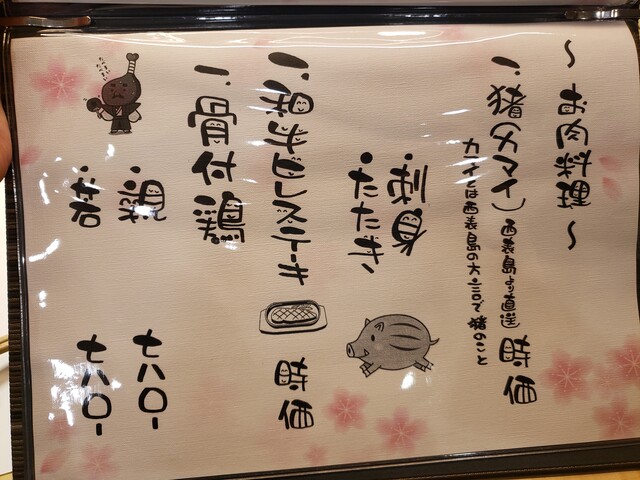 ～お肉料理～
一.猪(カマイ) 西表島より直送 時価
カマイとは西表島の方言で猪のこと
・刺身
・たたき
一.和牛ヒレステーキ 時価
一.骨付鶏
・親 七八〇-
・若 七八〇-